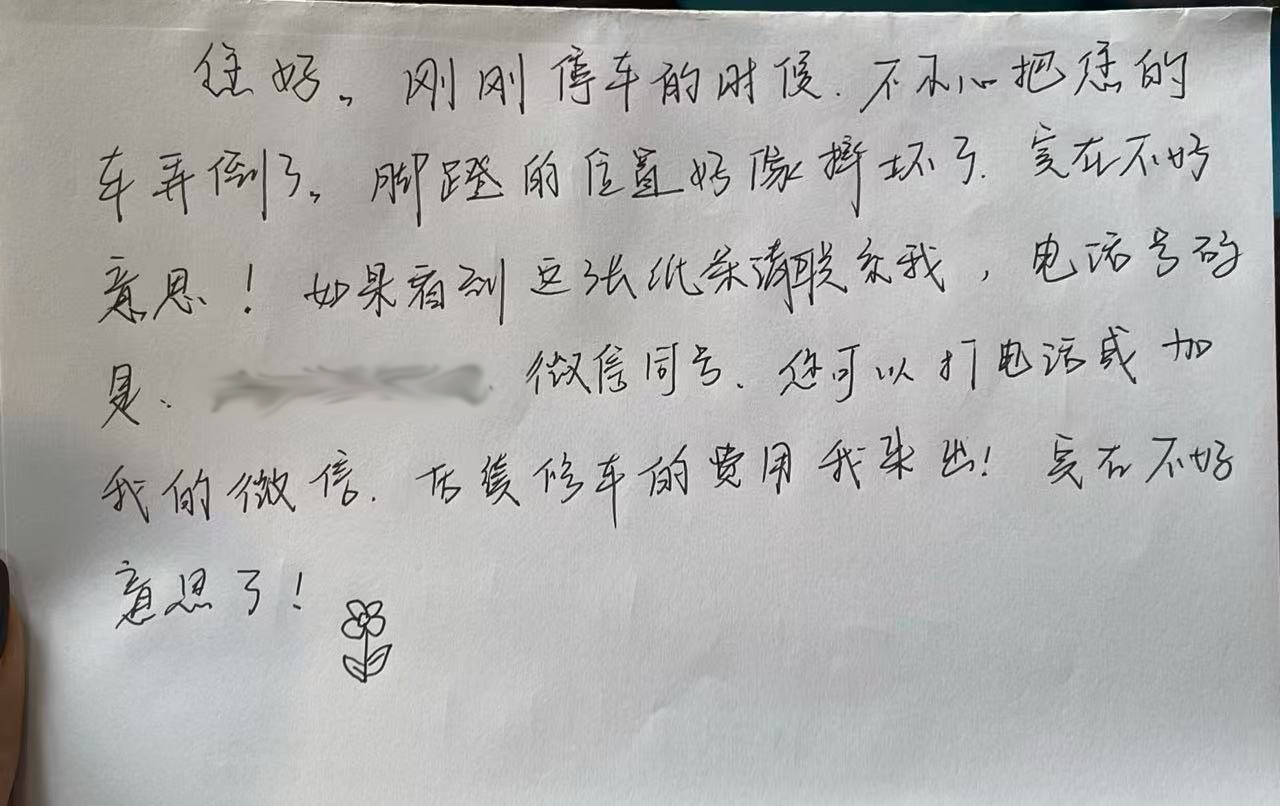 您好。刚刚停车的时候.不小心把您的
车弄倒了。脚蹬的位置好像摔坏了.实在不好
意思!如果看到这张纸条请联系我,电话号码
是、微信同号、您可以打电话或加
我的微信.后续修车的费用我来出!实在不好
意思了!